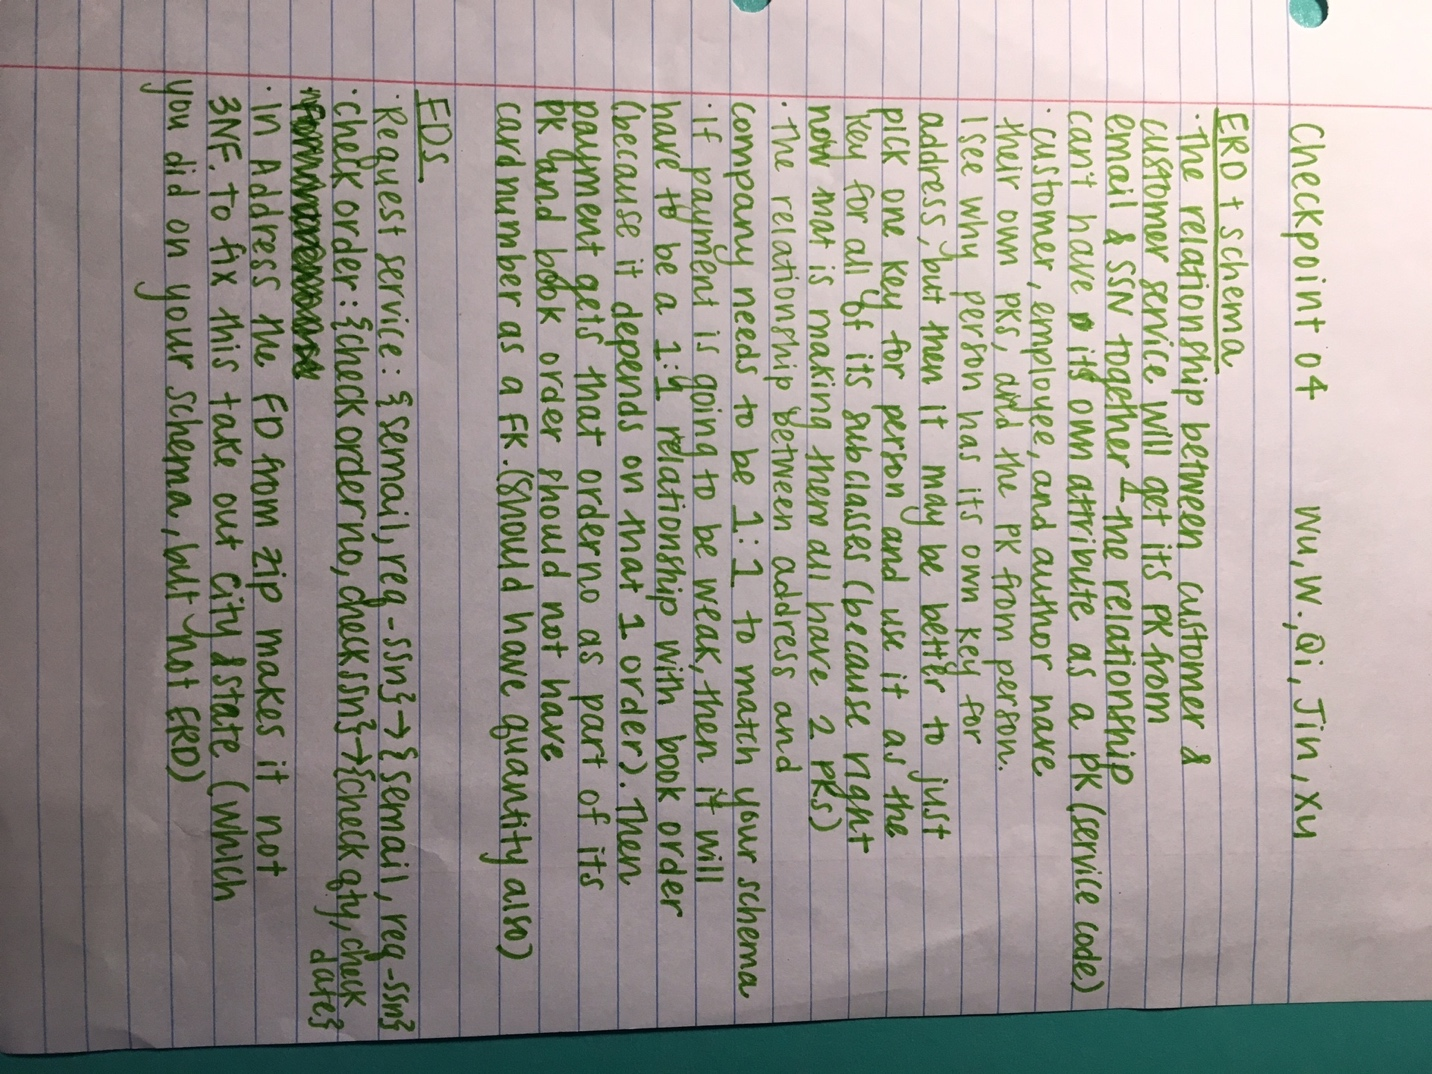 Checkpoint 04 Wu, W., Qi, Jin, Xu
ERD + schema
· The relationship between customer &
customer service will get its PK from
email & SSN together - the relationship
can't have its own attribute as a PK (service code)
· customer, employee, and author have
their own PKs, and the PK from person.
I see why person has its own key for
address, but then it may be better to just
pick one key for person and use it as the
key for all of its subclasses (because right
now that is making them all have 2 PKs)
· The relationship between address and
company needs to be 1:1 to match your schema
· if payment is going to be weak, then it will
have to be a 1:1 relationship with book order
(because it depends on that 1 order). Then
payment gets that orderno as part of its
PK and book order should not have
card number as a FK. (Should have quantity also)
FDs
· Request service: {semail, req-ssn} → {semail, req-ssn}
· check order: {check orderno, checkssn} → {check qty, check
date}
· In Address the FD from zip makes it not
3NF. To fix this take out city & state (which
you did on your schema, but not ERD)